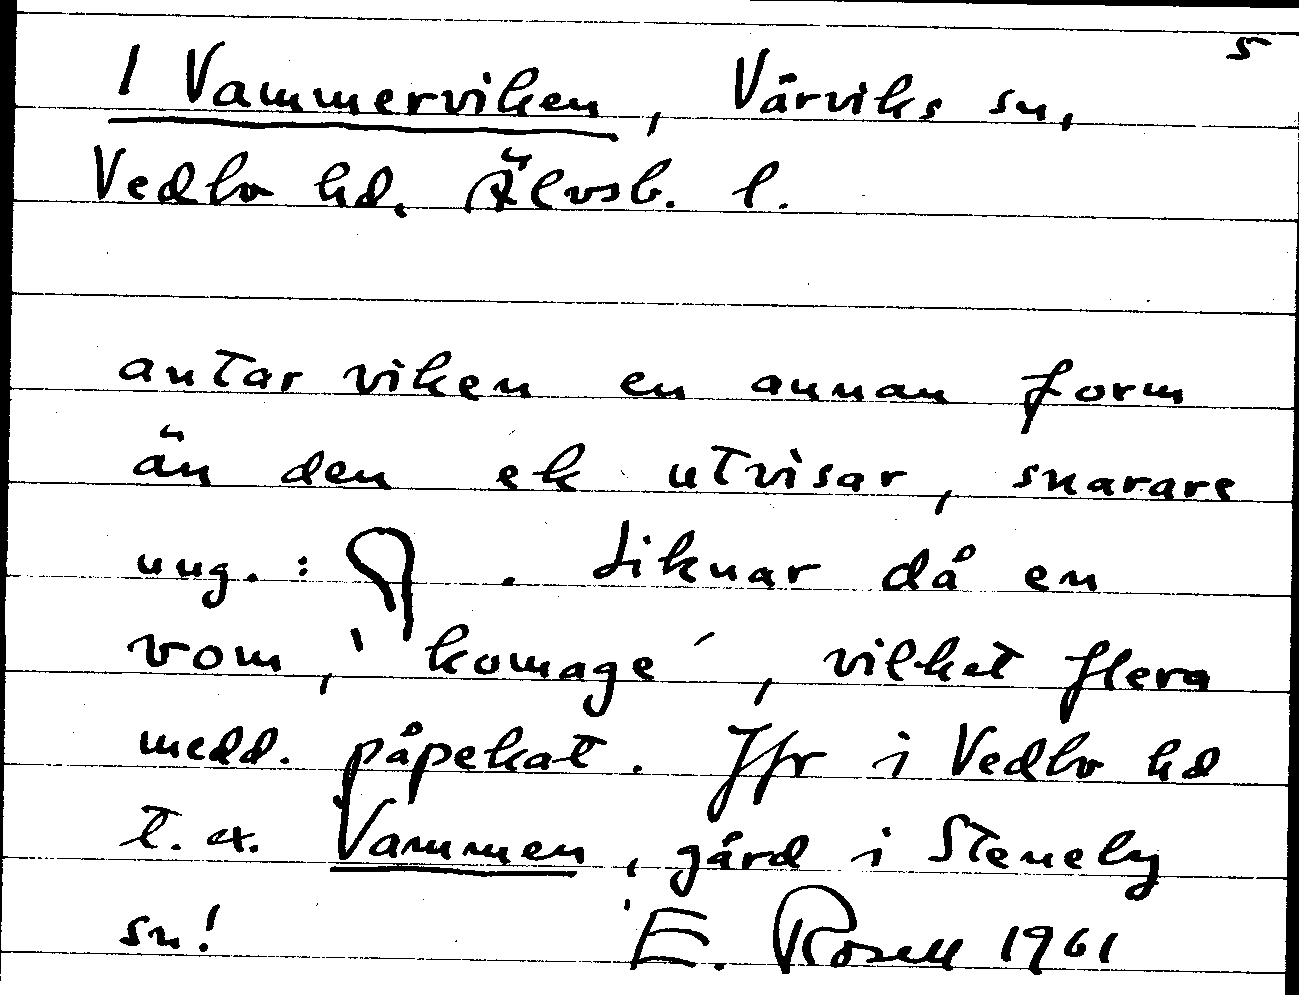 5
1 Vammerviken, Värviks sn,
Vedbo hd. Älvsb. l.
antar viken en annan form
än den ek utvisar, snarare
ung. : . Liknar då en
vom, 'komage', vilket flera
medd. påpekat. Jfr i Vedbo hd
t. ex. Vammen, gård i Steneby
sn! E. Rosell 1961